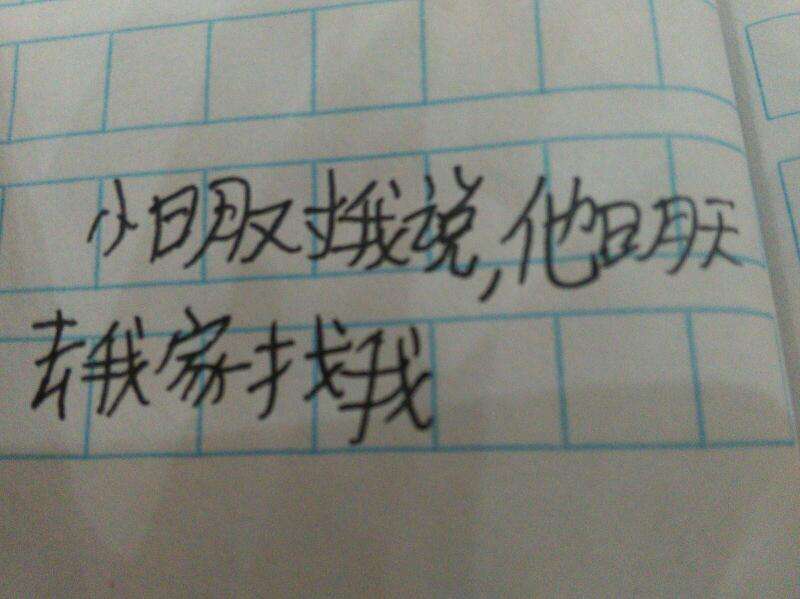 小明对我说,他明天
去我家找我